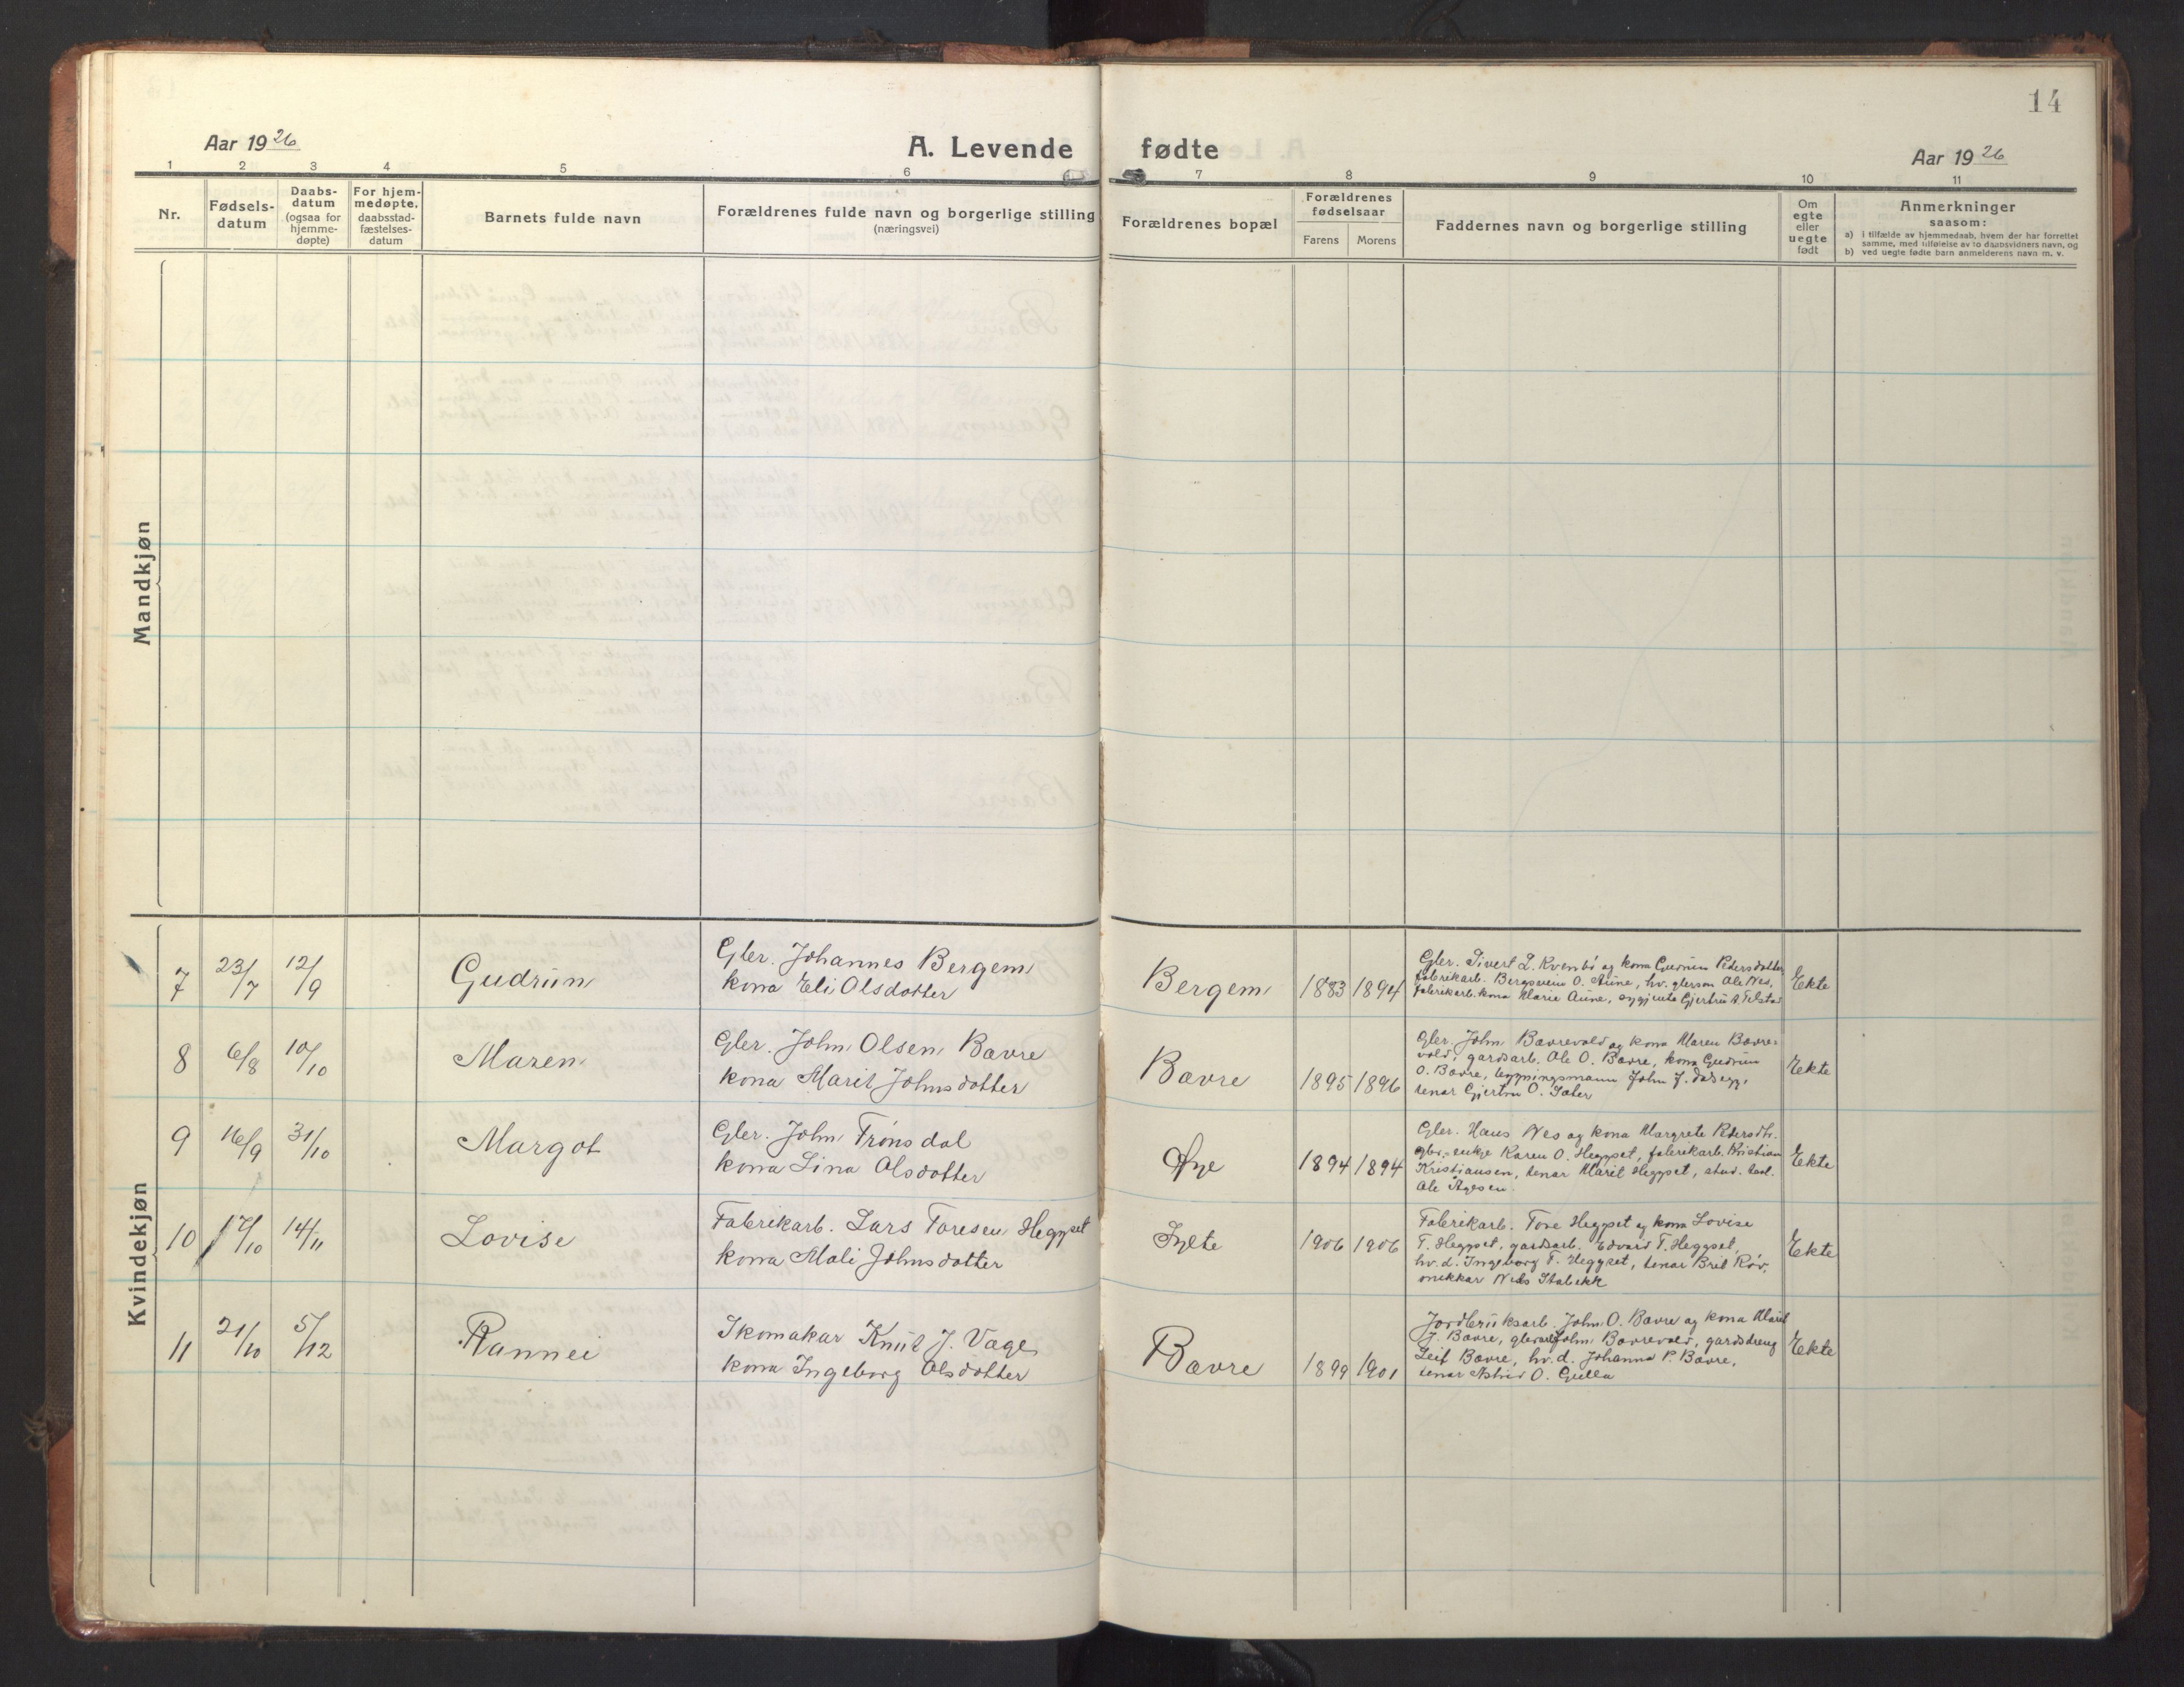 14
Aar 1926
A. Levende fødte
Aar 1926
1 2 3 4 5 6 7 8 9 10 11
Nr.
Fødsels-
datum
Daabs-
datum
(ogsaa for
hjemme-
døpte)
For hjem-
medøpte,
daabsstad-
fæstelses-
datum
Barnets fulde navn
Forældrenes fulde navn og borgerlige stilling
(næringsvei)
Forældrenes bopæl
Forældrenes
fødselsaar
Farens Morens
Faddernes navn og borgerlige stilling
Om
egte
eller
uegte
født
Anmerkninger
saasom:
a) i tilfælde av hjemmedaab, hvem der har forrettet
samme, med tilføielse av to daabsvidners navn, og
b) ved uegte fødte barn anmelderens navn m. v.
Mandkjøn
Kvindekjøn
7 23/7 12/9 Gudrun
Gbr. Johannes Bergem
kona Eli Olsdotter
Bergem 1883 1894
Gbr. Sivert L. Kvenbö og kona Gudrun Petersdotter,
fabrikarb. Bergsvein O. Aune, hv. gbrson Ole Nes,
fabrikarb.kona Marie Aune, sygjente Gjertru A. Telstad
Ekte
8 6/8 10/10 Maren
Gbr. John Olsen Bavre
kona Marit Johnsdotter
Bavre 1895 1896
Gbr. John Bavrevold og kona Maren Bavre-
vold, gardsarb. Ole O. Bavre, kona Gudrun
O. Bavre, bygningsmann John J.
tenar Gjertru O. Sæter
Ekte
9 16/9 31/10 Margot
Gbr. John Trönsdal
kona Lina Olsdotter
Øye 1894 1894
Gbr. Hans Nes og kona Margrete Petersdtr.
gbr.-enkje Karen O. Heggset, fabrikarb. Kristian
Kristiansen, tenar Marit Heggset, stud.
Ole Ågesen.
Ekte
10 17/10 14/11 Lovise
Fabrikarb. Lars Toresen Heggset
kona Mali Johnsdotter
Sylte 1906 1906
Fabrikarb. Tore Heggset og kona Lovise
T. Heggset, gardsarb. Edvard T. Heggset,
hv. d. Ingeborg T. Heggset, tenar Brit Röv,
snikkar Nils Stabekk
Ekte
11 21/10 5/12 Rannei
Skomakar Knut J. Våge
kona Ingeborg Olsdotter
Bavre 1899 1901
Jordbruksarb. John O. Bavre og kona Marit
J. Bavre, John Bavrevold, gardsdreng
Leif Bavre, hv. d. Johanna P. Bavre,
tenar Astrid O. Gulla
Ekte